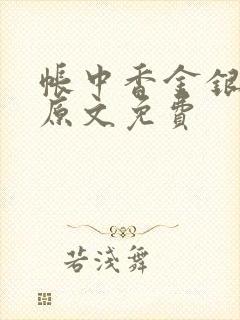 帳中香金銀
原文免費
若淺舞